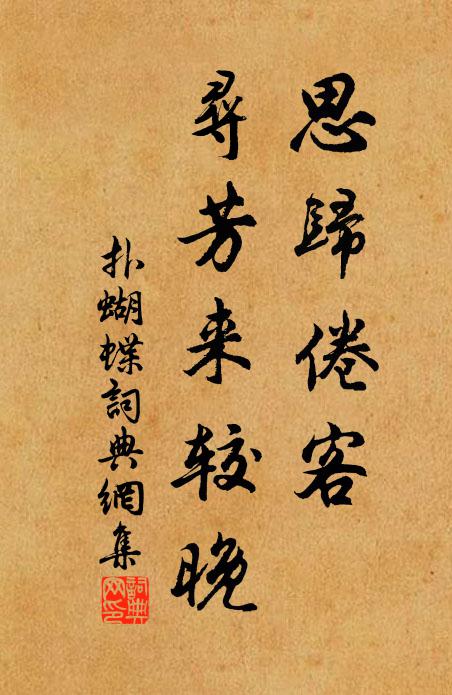 思歸倦客
尋芳来较晚
扑蝴蝶詞典網集
詞典
网印